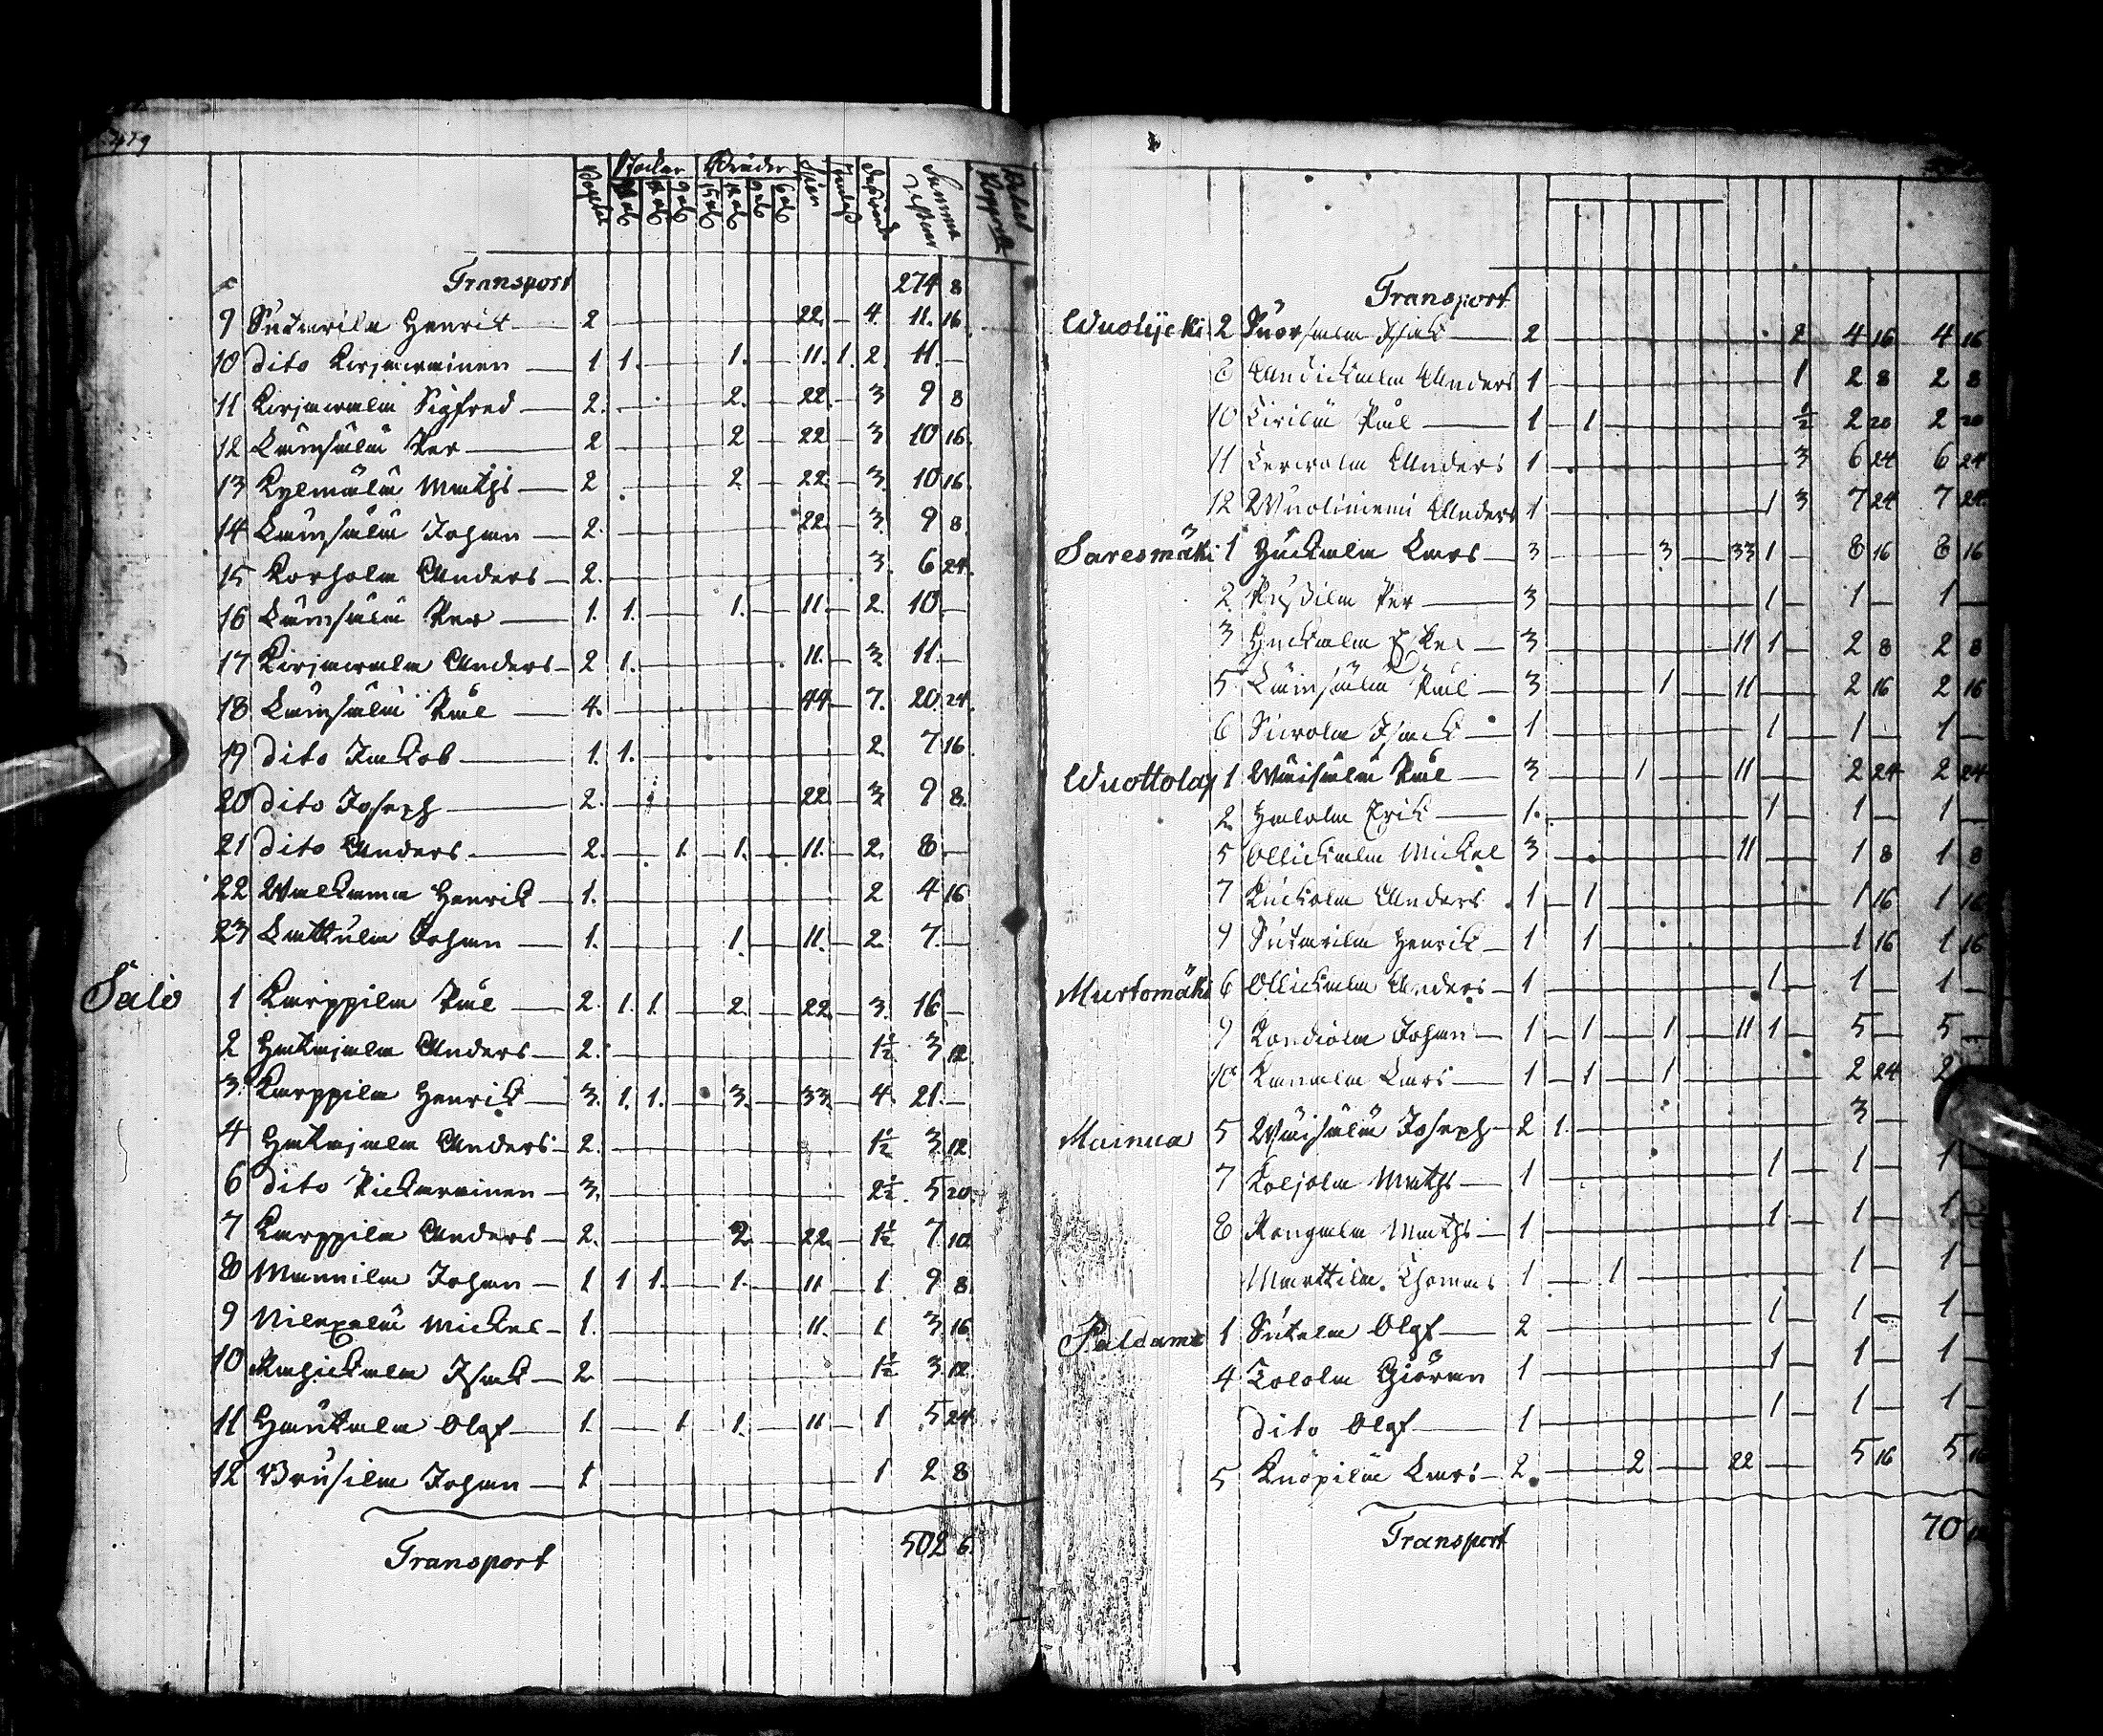 Stockar Bräder
Transport 274 8
9 Sutarila Henrik 2 22 4 11 16
10 dito Kirjawainen 1 1 1 11 1 2 11
11 Kirjawala Sigfred 2 2 22 3 9 8
12 Lämsälä Per 2 2 22 3 10 16
13 Kylmälä Maths 2 2 22 3 10 16
14 Lämsälä Johan 2 22 3 9 8
15 Korhola Anders 2 3 6 24
16 Lämsälä Per 1 1 1 11 2 10
17 Kirjawala Anders 2 1 11 3 11
18 Lämsälä Pål 4 44 7 20 24
19 dito Jackob 1 1 2 7 16
20 dito Joseph 2 22 3 9 8
21 dito Anders 2 1 1 11 2 8
22 Walkama Henrik 1 2 4 16
23 Lattula Johan 1 1 11 2 7
Salo 1 Karppila Pål 2 1 1 2 22 3 16
2 Hatajala Anders 2 1½ 3 12
3 Karppila Henrik 3 1 1 3 33 4 21
4 Hatajala Anders 2 1½ 3 12
6 dito Pickarainen 3 2½ 5 20
7 Karppila Anders 2 2 22 1½ 7 10
8 Mannila Johan 1 1 1 1 11 1 9 8
9 Mickel 1 11 1 3 16
10 Isack 2 1½ 3 12
11 Olof 1 1 1 11 1 5 24
12 Johan 1 1 2 8
Transport 502 6
Transport
Wuolijocki 2 2 2 4 16 4 16
8 Andickala Anders 1 1 2 8 2 8
10 Pål 1 1 ½ 2 20 2 20
11 Anders 1 3 6 24 6 24
12 Wuoliniemi Anders 1 1 3 7 24 7 24
Saresmäki 1 Huckala Lars 3 3 33 1 8 16 8 16
2 Per 3 1 1 1
3 Huckala 3 11 1 2 8 2 8
5 Lämsälä Pål 3 1 11 2 16 2 16
6 Isack 1 1 1 1
Wuottolax 1 Wäisälä Pål 3 1 11 2 24 2 24
2 Halola Erik 1 1 1 1
5 Ollickala Mickel 3 11 1 8 1 8
7 Anders 1 1 1 16 1 16
9 Sutarila Henrik 1 1 1 16 1 16
Murtomäki 6 Ollickala Anders 1 1 1 1
9 Kondiola Johan 1 1 1 11 1 5 5
10 Lars 1 1 1 2 24 2
Mainua 5 Wäisälä Joseph 2 1 3
7 Koljola Maths 1 1 1 1
8 Kangala Maths 1 1 1 1
Marttila Thomas 1 1 1 1
Paldamo 1 Sutala Olof 2 1 1 1
4 Tolola Giöran 1 1 1 1
dito Olof 1 1 1 1
5 Knopila Lars 2 2 22 5 16 5 16
Transport 70